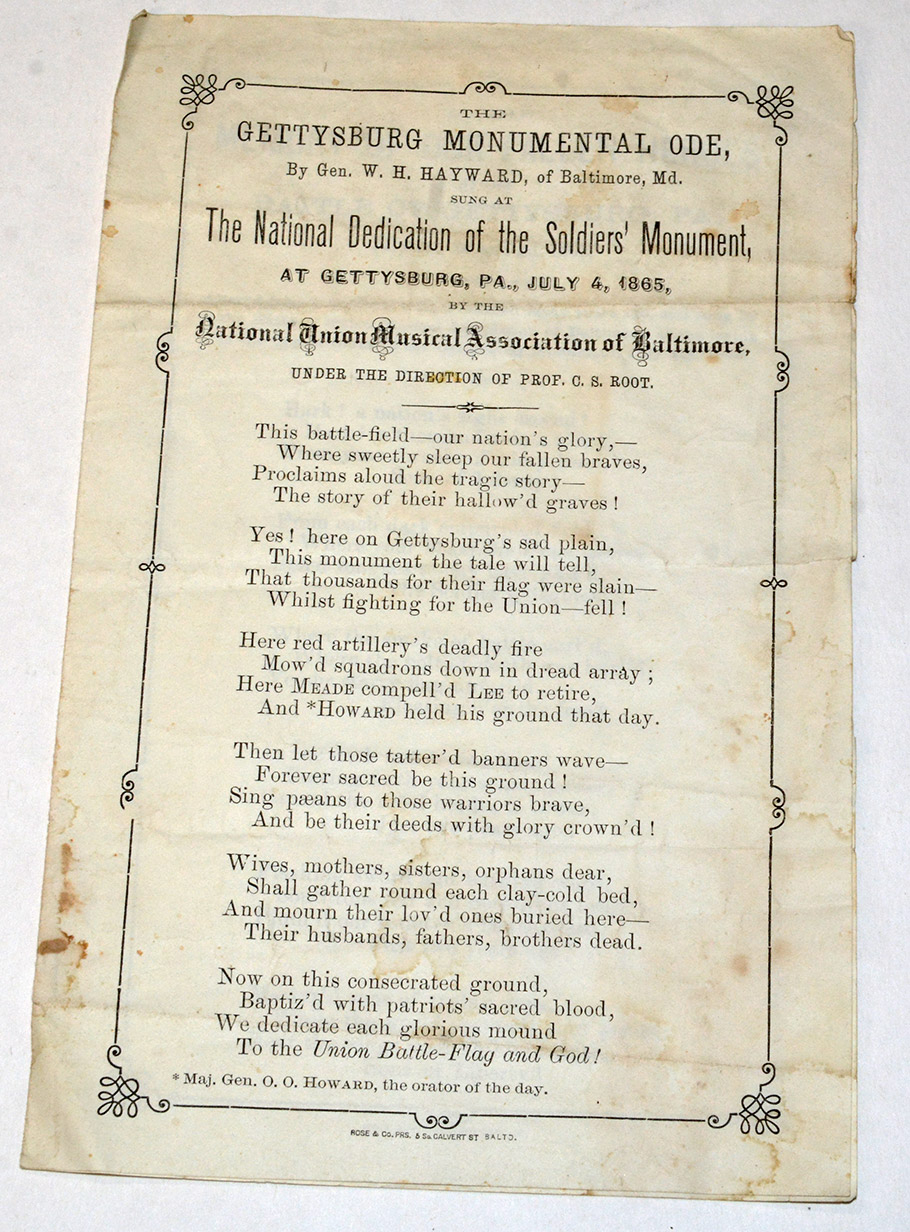 THE
GETTYSBURG MONUMENTAL ODE,
By Gen. W. H. HAYWARD, of Baltimore, Md.
SUNG AT
The National Dedication of the Soldiers' Monument,
AT GETTYSBURG, PA., JULY 4, 1865,
BY THE
National Union Musical Association of Baltimore,
UNDER THE DIRECTION OF PROF. C. S. ROOT.
This battle-field—our nation's glory,—
Where sweetly sleep our fallen braves,
Proclaims aloud the tragic story—
The story of their hallow'd graves !
Yes ! here on Gettysburg's sad plain,
This monument the tale will tell,
That thousands for their flag were slain—
Whilst fighting for the Union—fell !
Here red artillery's deadly fire
Mow'd squadrons down in dread array ;
Here MEADE compell'd LEE to retire,
And *HOWARD held his ground that day.
Then let those tatter'd banners wave—
Forever sacred be this ground !
Sing pæans to those warriors brave,
And be their deeds with glory crown'd !
Wives, mothers, sisters, orphans dear,
Shall gather round each clay-cold bed,
And mourn their lov'd ones buried here—
Their husbands, fathers, brothers dead.
Now on this consecrated ground,
Baptiz'd with patriots' sacred blood,
We dedicate each glorious mound
To the Union Battle-Flag and God!
* Maj. Gen. O. O. HOWARD, the orator of the day.
ROSE & CO. PRS. 5 So. CALVERT ST BALTO.